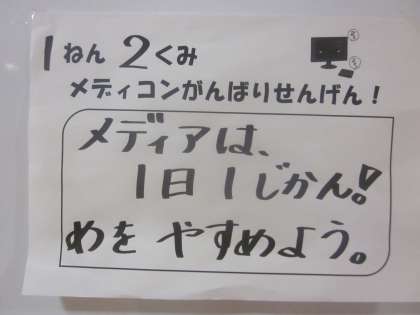 1ねん2くみ
メディコンがんばりせんげん!
メディアは、
1日1じかん!
めをやすめよう。